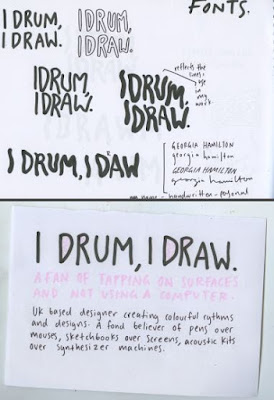 FONTS.
I DRUM,
I DRAW.
I DRUM,
I DRAW.
I DRUM,
I DRAW.
I DRUM,
I DRAW.
reflects the
lines I
use
in
my
work.
I DRUM, I DAW
GEORGIA HAMILTON
georgia hamilton
GEORGIA HAMILTON
georgia hamilton
name - handwritten - personal
I DRUM, I DRAW.
A FAN OF TAPPING ON SURFACES
AND NOT USING A COMPUTER.
UK based designer creating colourful rythms
and designs. A fond believer of pens over
mouses, sketchbooks over screens, acoustic kits
over synthesizer machines.